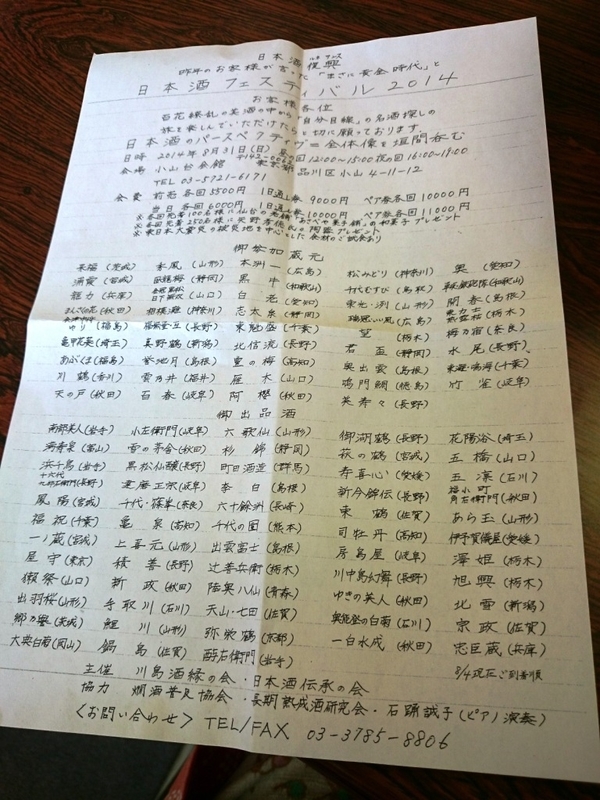 日本酒復興
ルネサンス
昨年のお客様が言った「まさに黄金時代」と
日本酒フェスティバル2014
お客様各位
百花繚乱の美酒の中から「自分目線」の名酒探しの
旅を楽しんでいただけたらと切に願っております
日本酒のパースペクティヴ=全体像を垣間呑む
日時 2014年8月31日(日) 昼の回12:00~15:00 夜の回16:00~19:00
会場 小山台会館 〒142-0062 東京都品川区小山4-11-12
TEL 03-5721-6171
会費 前売各回5500円 1日通し券 9000円 ペア券各回10000円
当日各回6000円 1日通し券10000円 ペア券各回11000円
御参加蔵元
来福(茨城) 秀鳳(山形) 本洲一(広島) 松みどり(神奈川) 奥(愛知)
浦霞(宮城) 黒牛(和歌山) 千代むすび(鳥取)
龍力(兵庫) 白老(愛知) 開春(島根)
まんさくの花(秋田) 相模灘(神奈川) 志太泉(静岡)
ゆり(福島) 東魁盛(千葉) 望(栃木) 梅乃宿(奈良)
亀甲花菱(埼玉) 北信流(長野) 君盃(静岡) 水尾(長野)
あぶくま(福島) 豊の梅(高知) 奥出雲(島根)
川鶴(香川) 雲の井(福井) 雁木(山口) 鳴門鯛(徳島) 竹雀(岐阜)
天の戸(秋田) 百春(岐阜) 阿櫻(秋田) 英寿々(長野)
御出品酒
南部美人(岩手) 小左衛門(岐阜) 六歌仙(山形) 御湖鶴(長野) 花陽浴(埼玉)
満寿泉(富山) 雪の茅舎(秋田) 杉錦(静岡) 萩の鶴(宮城) 五橋(山口)
浜千鳥(岩手) 黒松仙醸(長野) 町田酒造(群馬) 寿喜心(愛媛) 五凛(石川)
十六代九郎右衛門(長野) 達磨正宗(岐阜) 李白(島根) 新今錦伝(長野) 福小町角右衛門(秋田)
鳳陽(宮城) 千代・篠峯(奈良) 六十餘洲(長崎) 東鶴(佐賀) あら玉(山形)
福祝(千葉) 亀泉(高知) 千代の園(熊本) 司牡丹(高知) 伊予賀儀屋(愛媛)
一ノ蔵(宮城) 上喜元(山形) 出雲富士(島根) 房島屋(岐阜) 澤姫(栃木)
星守(東京) 積善(長野) 辻善兵衛(栃木) 川中島幻舞(長野) 旭興(栃木)
獺祭(山口) 新政(秋田) 陸奥八仙(青森) ゆきの美人(秋田) 北雪(新潟)
出羽桜(山形) 手取川(石川) 天山・七田(佐賀) 奥能登の白菊(石川) 宗政(佐賀)
郷乃譽(茨城) 鯉川(山形) 弥栄鶴(京都) 一白水成(秋田) 忠臣蔵(兵庫)
大典白菊(岡山) 鍋島(佐賀) 酉与右衛門(岩手) 8/4現在ご到着順
主催 川島酒縁の会・日本酒伝承の会
協力 燗酒普及協会・長期熟成酒研究会・石踊誠子(ピアノ演奏)
〈お問い合わせ〉TEL/FAX 03-3785-8806